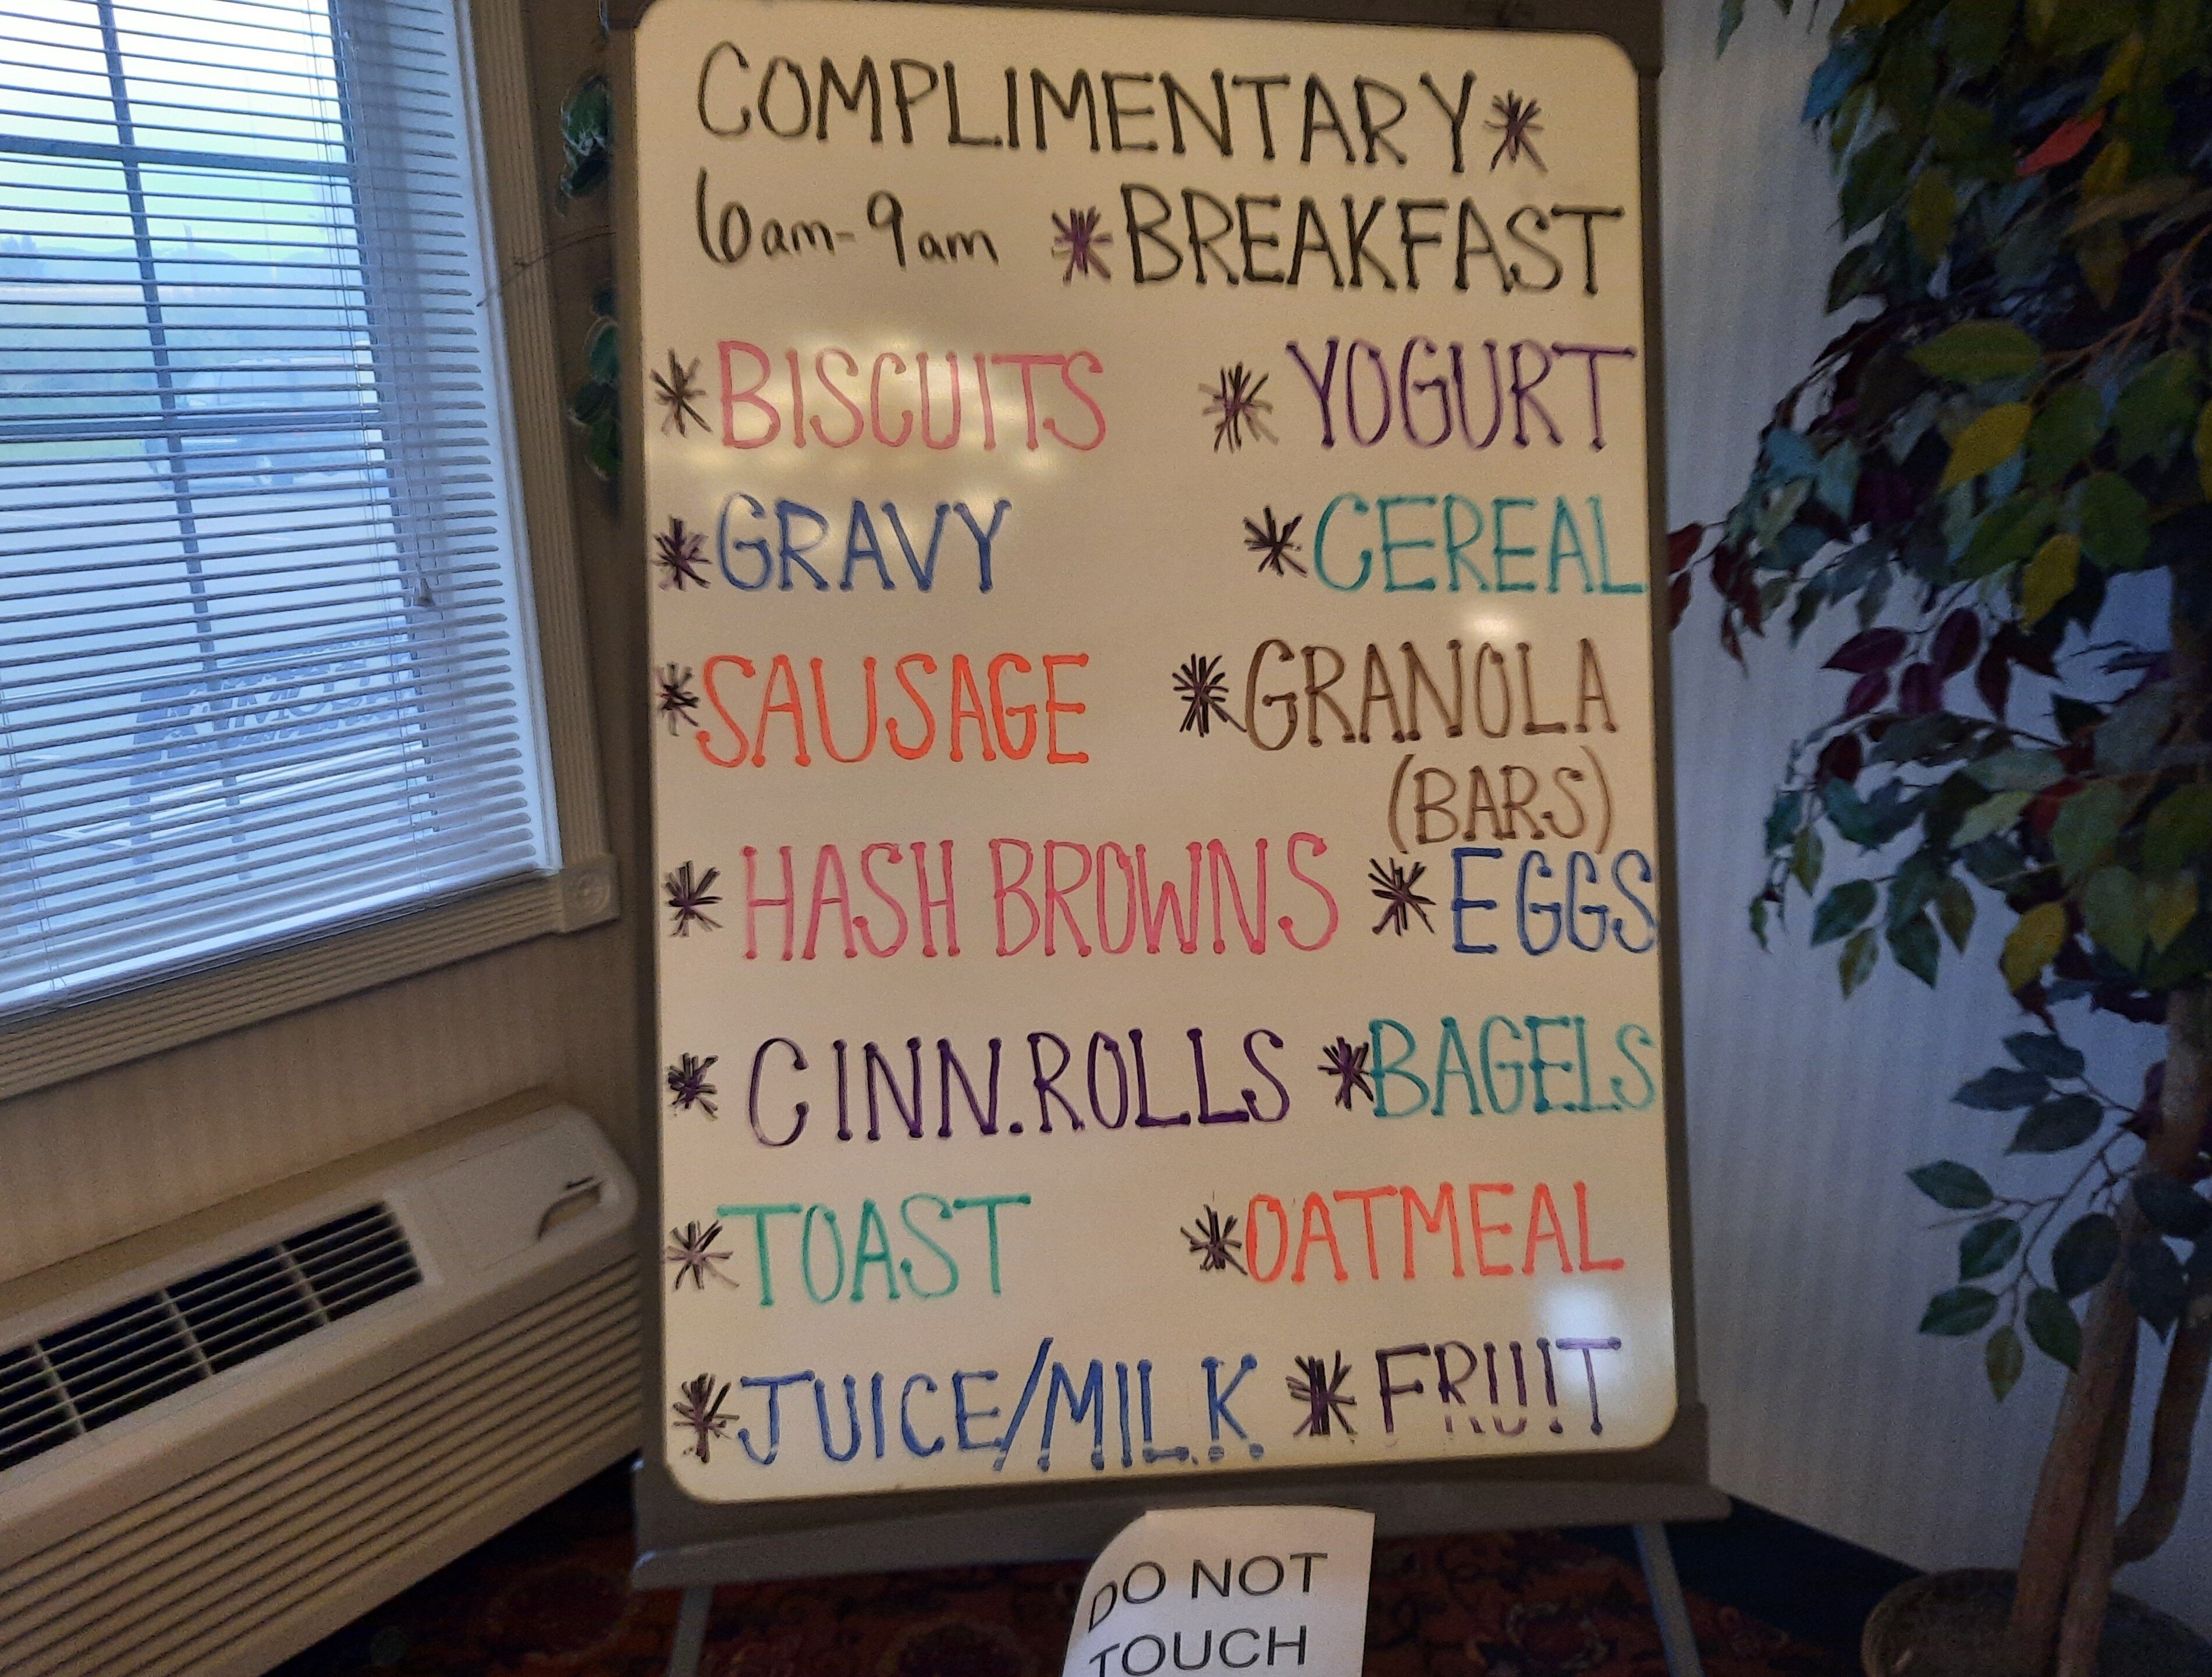 COMPLIMENTARY*
6am-9am *BREAKFAST
*BISCUITS *YOGURT
*GRAVY *CEREAL
*SAUSAGE *GRANOLA
(BARS)
*HASH BROWNS *EGGS
*CINN.ROLLS *BAGELS
*TOAST *OATMEAL
*JUICE/MILK *FRUIT
DO NOT
TOUCH